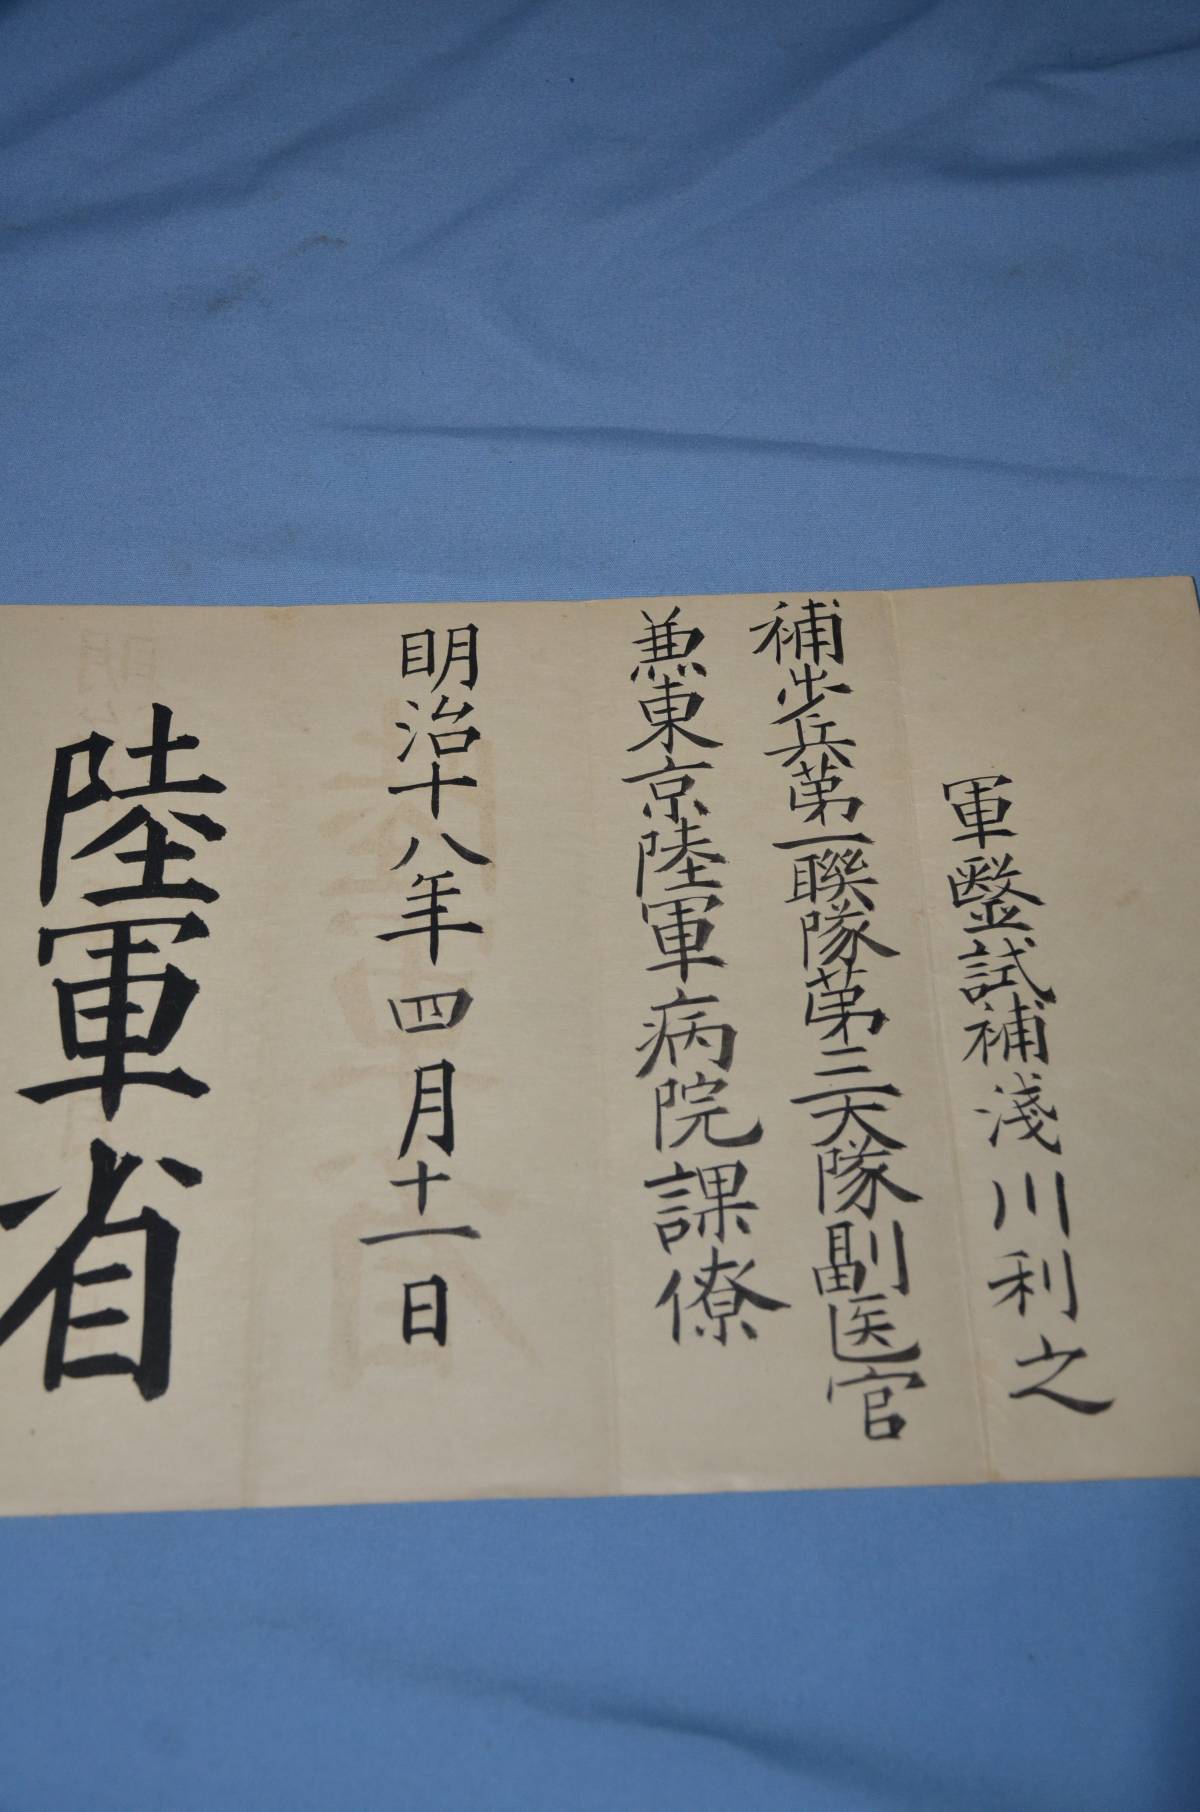 軍醫試補淺川利之
補步兵第一聯隊第三大隊副医官
兼東京陸軍病院課僚
明治十八年四月十一日
陸軍省